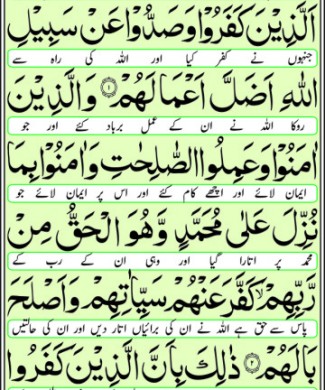 اَلَّذِیۡنَ كَفَرُوۡا وَصَدُّوۡا عَنۡ سَبِیۡلِ
جنہوں نے کفر کیا اور اللہ کی راہ سے
اللّٰهِ اَضَلَّ اَعۡمَالَهُمۡ ۝۱ وَالَّذِیۡنَ
روکا اللہ نے ان کے عمل برباد کئے اور جو
اٰمَنُوۡا وَعَمِلُوا الصّٰلِحٰتِ وَاٰمَنُوۡا بِمَا
ایمان لائے اور اچھے کام کئے اور اس پر ایمان لائے جو
نُزِّلَ عَلٰی مُحَمَّدٍ وَّهُوَ الۡحَقُّ مِنۡ
محمد پر اتارا گیا اور وہی ان کے رب کے
رَّبِّهِمۡ ۙ كَفَّرَ عَنۡهُمۡ سَیِّاٰتِهِمۡ وَاَصۡلَحَ
پاس سے حق ہے اللہ نے ان کی برائیاں اتار دیں اور ان کی حالتیں
بَالَهُمۡ ۝۲ ذٰلِكَ بِاَنَّ الَّذِیۡنَ كَفَرُوا